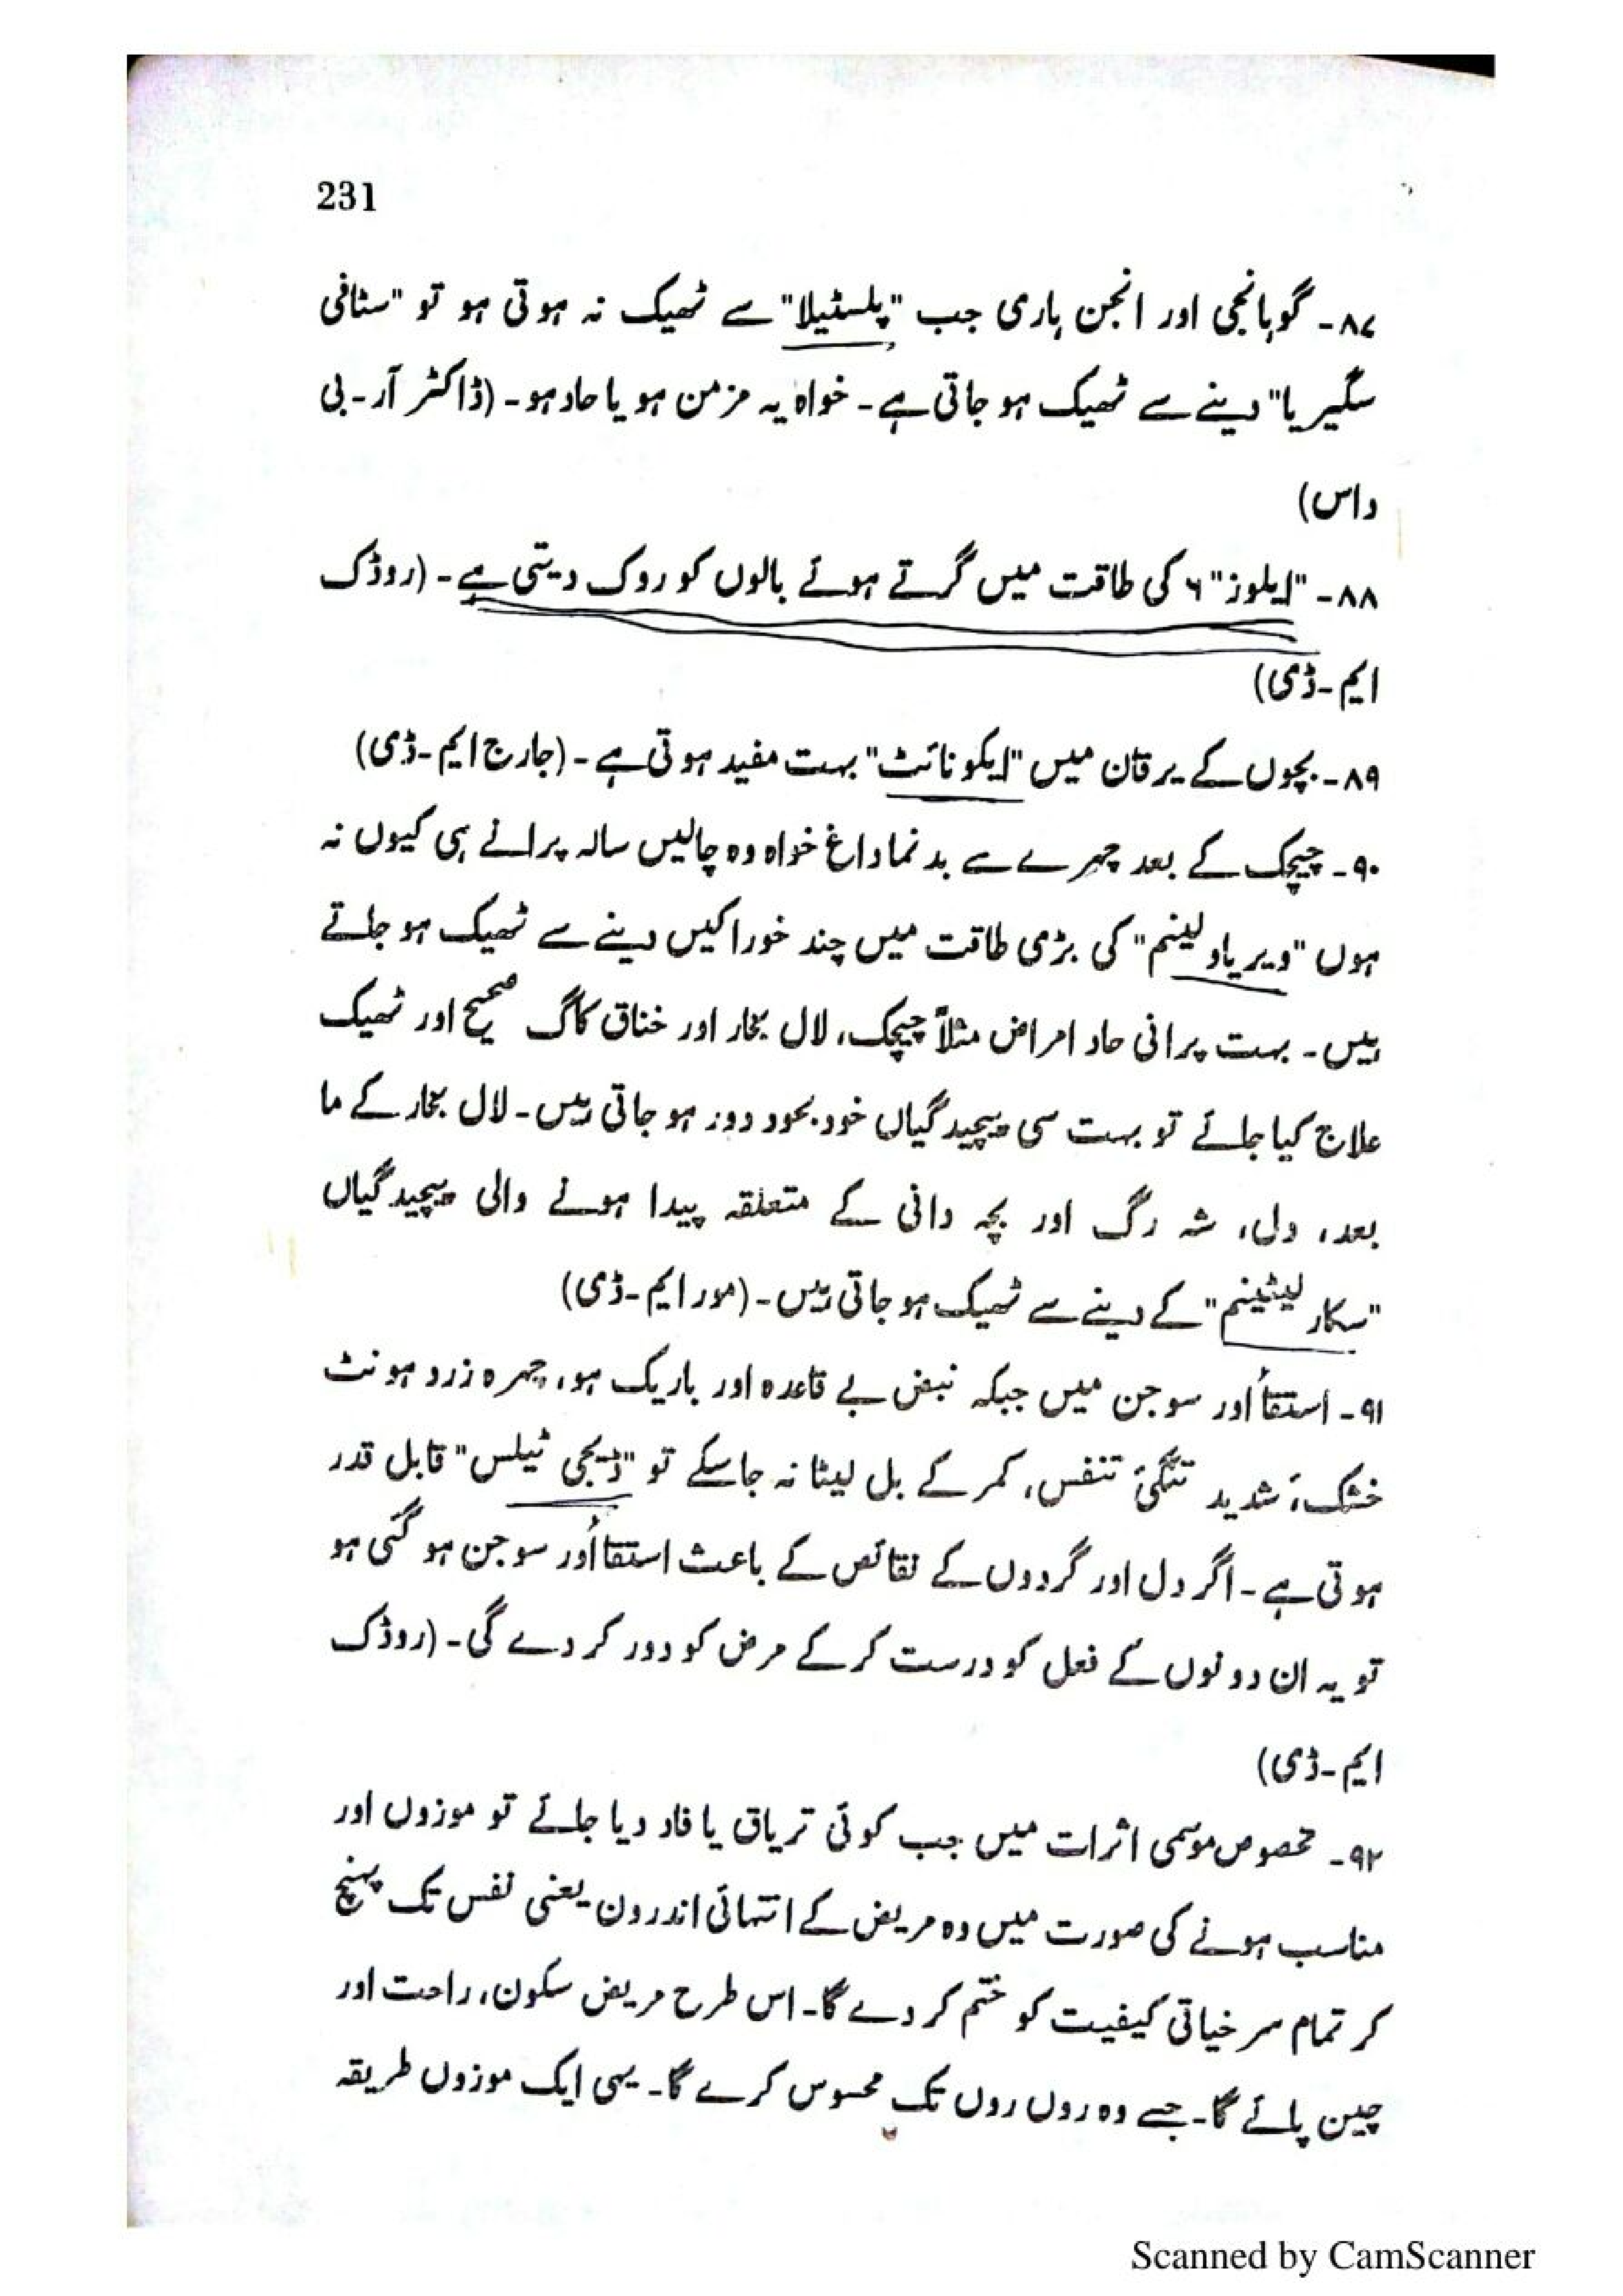 231
۸۷۔ گوہانجی اور انجن ہاری جب "پلسٹیلا" سے ٹھیک نہ ہوتی ہو تو "سٹافی
سگیریا" دینے سے ٹھیک ہو جاتی ہے۔ خواہ یہ مزمن ہو یا حاد ہو۔ (ڈاکٹر آر۔بی
داس)
۸۸۔ "ایلوز" ۶ کی طاقت میں گرتے ہوئے بالوں کو روک دیتی ہے۔ (روڈک
ایم۔ڈی)
۸۹۔ بچوں کے یرقان میں "ایکونائٹ" بہت مفید ہوتی ہے۔ (جارج ایم۔ڈی)
۹۰۔ چیچک کے بعد چہرے سے بدنما داغ خواہ وہ چالیس سالہ پرانے ہی کیوں نہ
ہوں "ویریاولینم" کی بڑی طاقت میں چند خوراکیں دینے سے ٹھیک ہو جاتے
ہیں۔ بہت پرانی حاد امراض مثلاً چیچک، لال بخار اور خناق کا گ صحیح اور ٹھیک
علاج کیا جائے تو بہت سی پیچیدگیاں خودبخود دور ہو جاتی ہیں۔ لال بخار کے ما
بعد، دل، شہ رگ اور بچہ دانی کے متعلقہ پیدا ہونے والی پیچیدگیاں
"سکارلیٹینم" کے دینے سے ٹھیک ہو جاتی ہیں۔ (مور ایم۔ڈی)
۹۱۔ استقاٴ اور سوجن میں جبکہ نبض بے قاعدہ اور باریک ہو، چہرہ زرد ہونٹ
خشک، شدید تنگیٔ تنفس، کمر کے بل لیٹا نہ جا سکے تو "ڈیجی ٹیلس" قابل قدر
ہوتی ہے۔ اگر دل اور گردوں کے نقائص کے باعث استقاٴ اور سوجن ہو گئی ہو
تو یہ ان دونوں کے فعل کو درست کر کے مرض کو دور کر دے گی۔ (روڈک
ایم۔ڈی)
۹۲۔ مخصوص موسمی اثرات میں جب کوئی تریاق یا فاد دیا جائے تو موزوں اور
مناسب ہونے کی صورت میں وہ مریض کے انتہائی اندرون یعنی نفس تک پہنچ
کر تمام سرخیاتی کیفیت کو ختم کر دے گا۔ اس طرح مریض سکون، راحت اور
چین پائے گا۔ جسے وہ روں روں تک محسوس کرے گا۔ یہی ایک موزوں طریقہ
Scanned by CamScanner